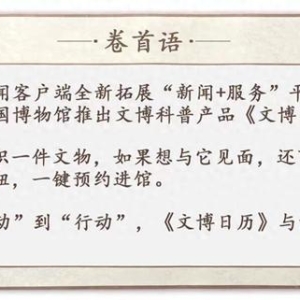 卷首语
闻客户端全新拓展“新闻+服务”平
国博物馆推出文博科普产品《文博
识一件文物，如果想与它见面，还
钮，一键预约进馆。
动”到“行动”，《文博日历》与